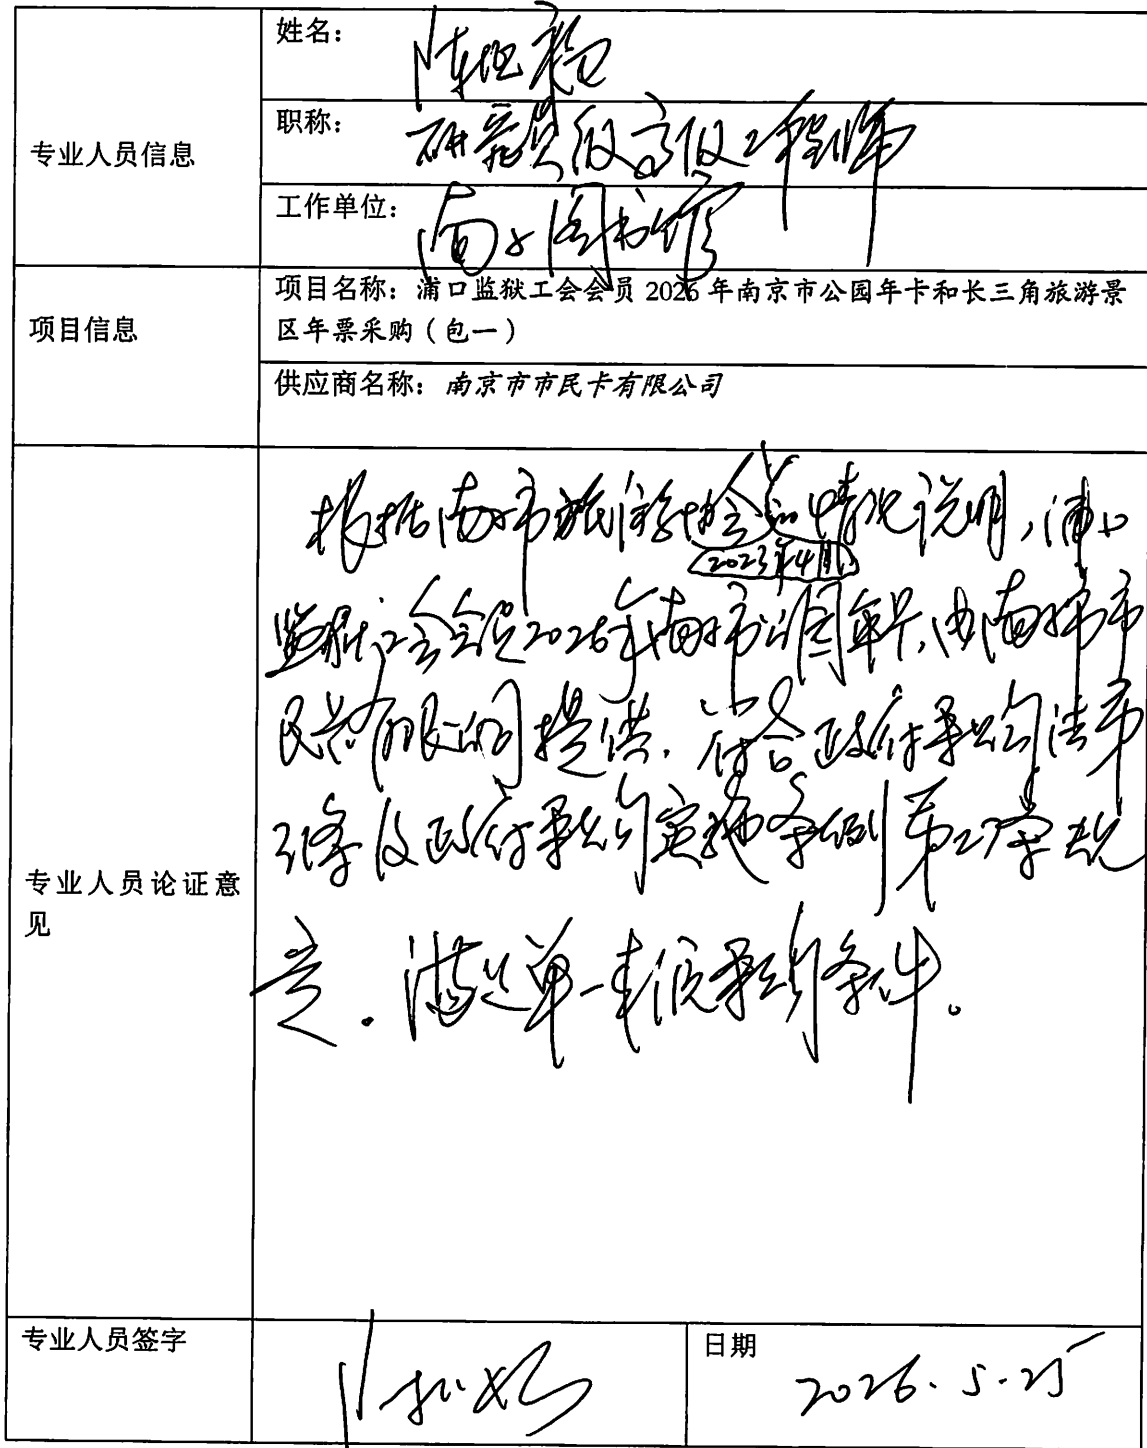 姓名：陈
专业人员信息
职称：研究员级高级工程师
工作单位：南京图书馆
项目信息
项目名称：浦口监狱工会会员 2026 年南京市公园年卡和长三角旅游景
区年票采购（包一）
供应商名称：南京市市民卡有限公司
专业人员论证意
见
根据南京市旅游协会的情况说明，浦口
（2023年4月）
监狱工会会员2026年南京市公园年卡，由南京市市
民卡有限公司提供，符合政府采购法第
31条及政府采购实施条例第27条规
定。满足单一来源采购条件。
专业人员签字
陈
日期
2026.5.25